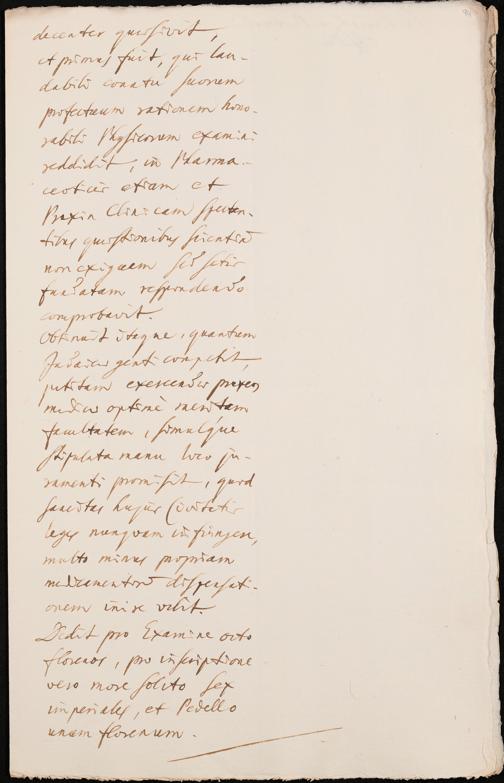 decenter quæsivit,
et primus fuit, qui lau-
dabili conatu suorum
profectuum rationem hono-
rabili Physicorum examini
reddidit, in Pharma-
ceoticis etiam et
Praxin Clinicam specten-
tibus quæstionibus scientiã
non exiguam sed satis
fundatam respondendo
comprobavit.
Obtinuit itaque, quantum
Judaicæ genti competit,
petitam exercendæ praxeos
medicæ optimè meritam
facultatem, simulque
stipulata manu loco ju-
ramenti promisit, quod
sancitas hujus Civitatis
leges nunquam infringere,
multo minus propriam
medicamentorũ dispensati-
onem inire velit.
Dedit pro Examine octo
florenos, pro inscriptione
vero more solito sex
imperiales, et Pedello
unum florenum.